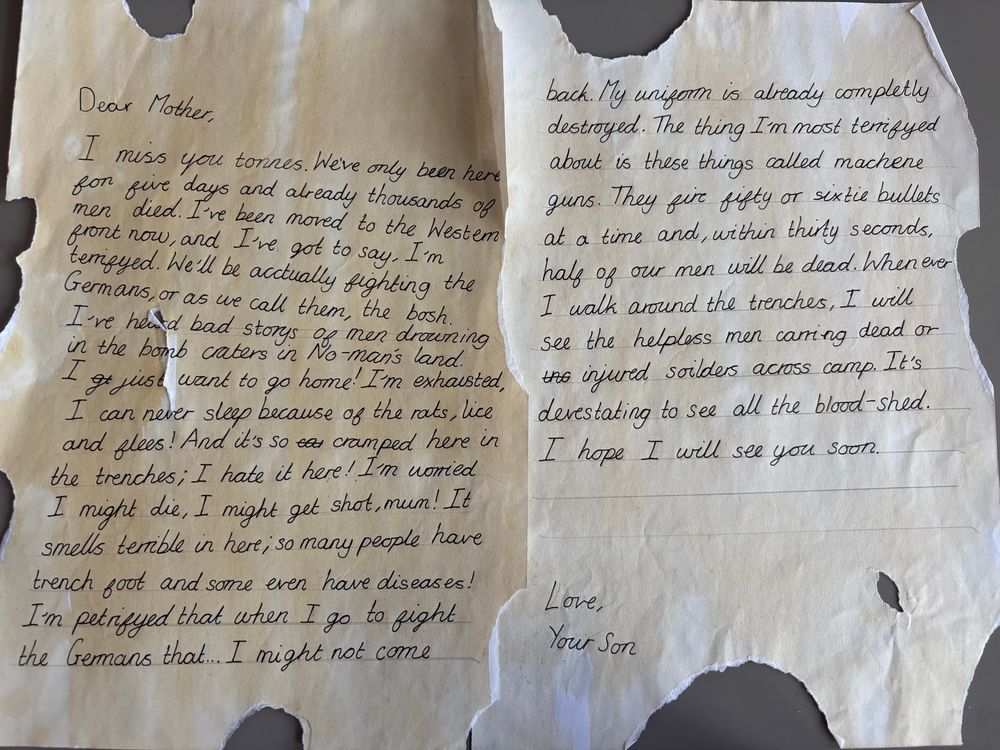 Dear Mother,
I miss you tonnes. We've only been here
for five days and already thousands of
men died. I've been moved to the Western
front now, and I've got to say, I'm
terrifyed. We'll be acctually fighting the
Germans, or as we call them, the bosh.
I've heard bad storys of men drowning
in the bomb craters in No-man's land.
I just want to go home! I'm exhausted,
I can never sleep because of the rats, lice
and flees! And it's so cramped here in
the trenches; I hate it here! I'm worried
I might die, I might get shot, mum! It
smells terrible in here; so many people have
trench foot and some even have diseases!
I'm petrifyed that when I go to fight
the Germans that... I might not come
back. My uniform is already completly
destroyed. The thing I'm most terrifyed
about is these things called machene
guns. They fire fifty or sixtie bullets
at a time and, within thirty seconds,
half of our men will be dead. When ever
I walk around the trenches, I will
see the helpless men carring dead or
injured soilders across camp. It's
devestating to see all the blood-shed.
I hope I will see you soon.
Love,
Your Son